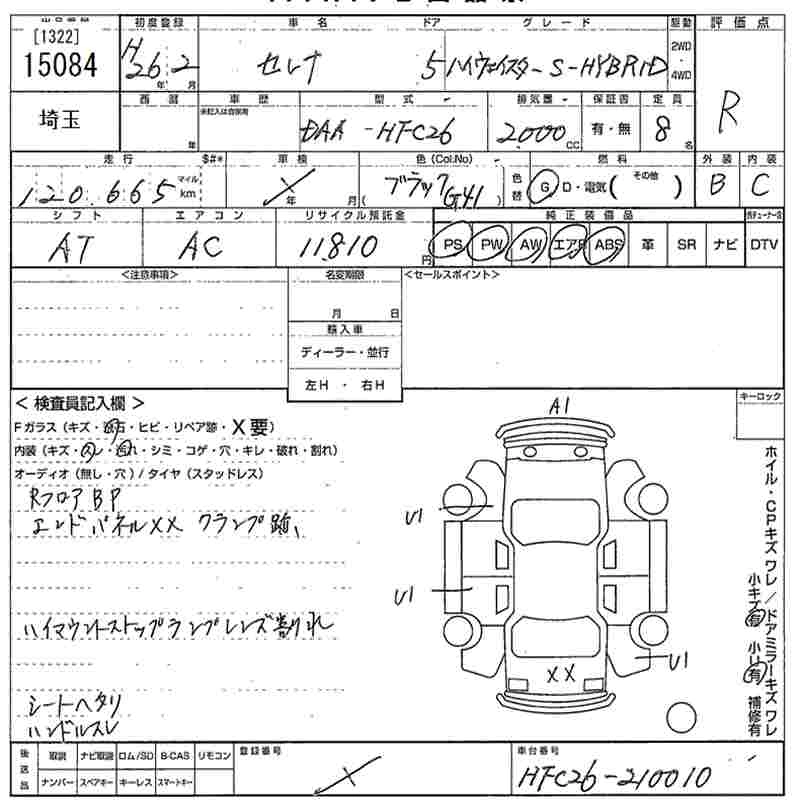 [1322]
15084
初度登録 車名 ドア グレード 駆動 評価点
H26年 2月 セレナ 5 ハイウェイスター S-HYBRID 2WD・4WD R
埼玉
西暦 車歴 型式 排気量 保証書 定員
年 未記入は自家用 DAA-HFC26 2000cc 有・無 8名
走行 $#* 車検 色(Col.No) 燃料 外装 内装
120,665 マイル km X 年 月 ブラック(G41) 色替 G D・電気(その他 ) B C
シフト エアコン リサイクル預託金 純正装備品
AT AC 11810円 PS PW AW エアB ABS 革 SR ナビ DTV
<注意事項> 名変期限 <セールスポイント>
月 日
輸入車
ディーラー・並行
左H ・ 右H
< 検査員記入欄 > キーロック
Fガラス(キズ・飛石・ヒビ・リペア跡・X要) A1
内装(キズ・スレ・汚れ・シミ・コゲ・穴・キレ・破れ・割れ)
オーディオ(無し・穴)/タイヤ(スタッドレス)
RフロアBP
エンドパネルXX クランプ跡、 U1
U1
ハイマウントストップランプレンズ割れ
U1
XX
シートヘタリ
ハンドルスレ
ホイル・CPキズワレ/ドアミラーキズワレ
小キズ有 小U有 補修有
後送品 取説 ナビ取説 ロム/SD B-CAS リモコン 登録番号 車台番号
ナンバー スペアキー キーレス スマートキー X HFC26-210010